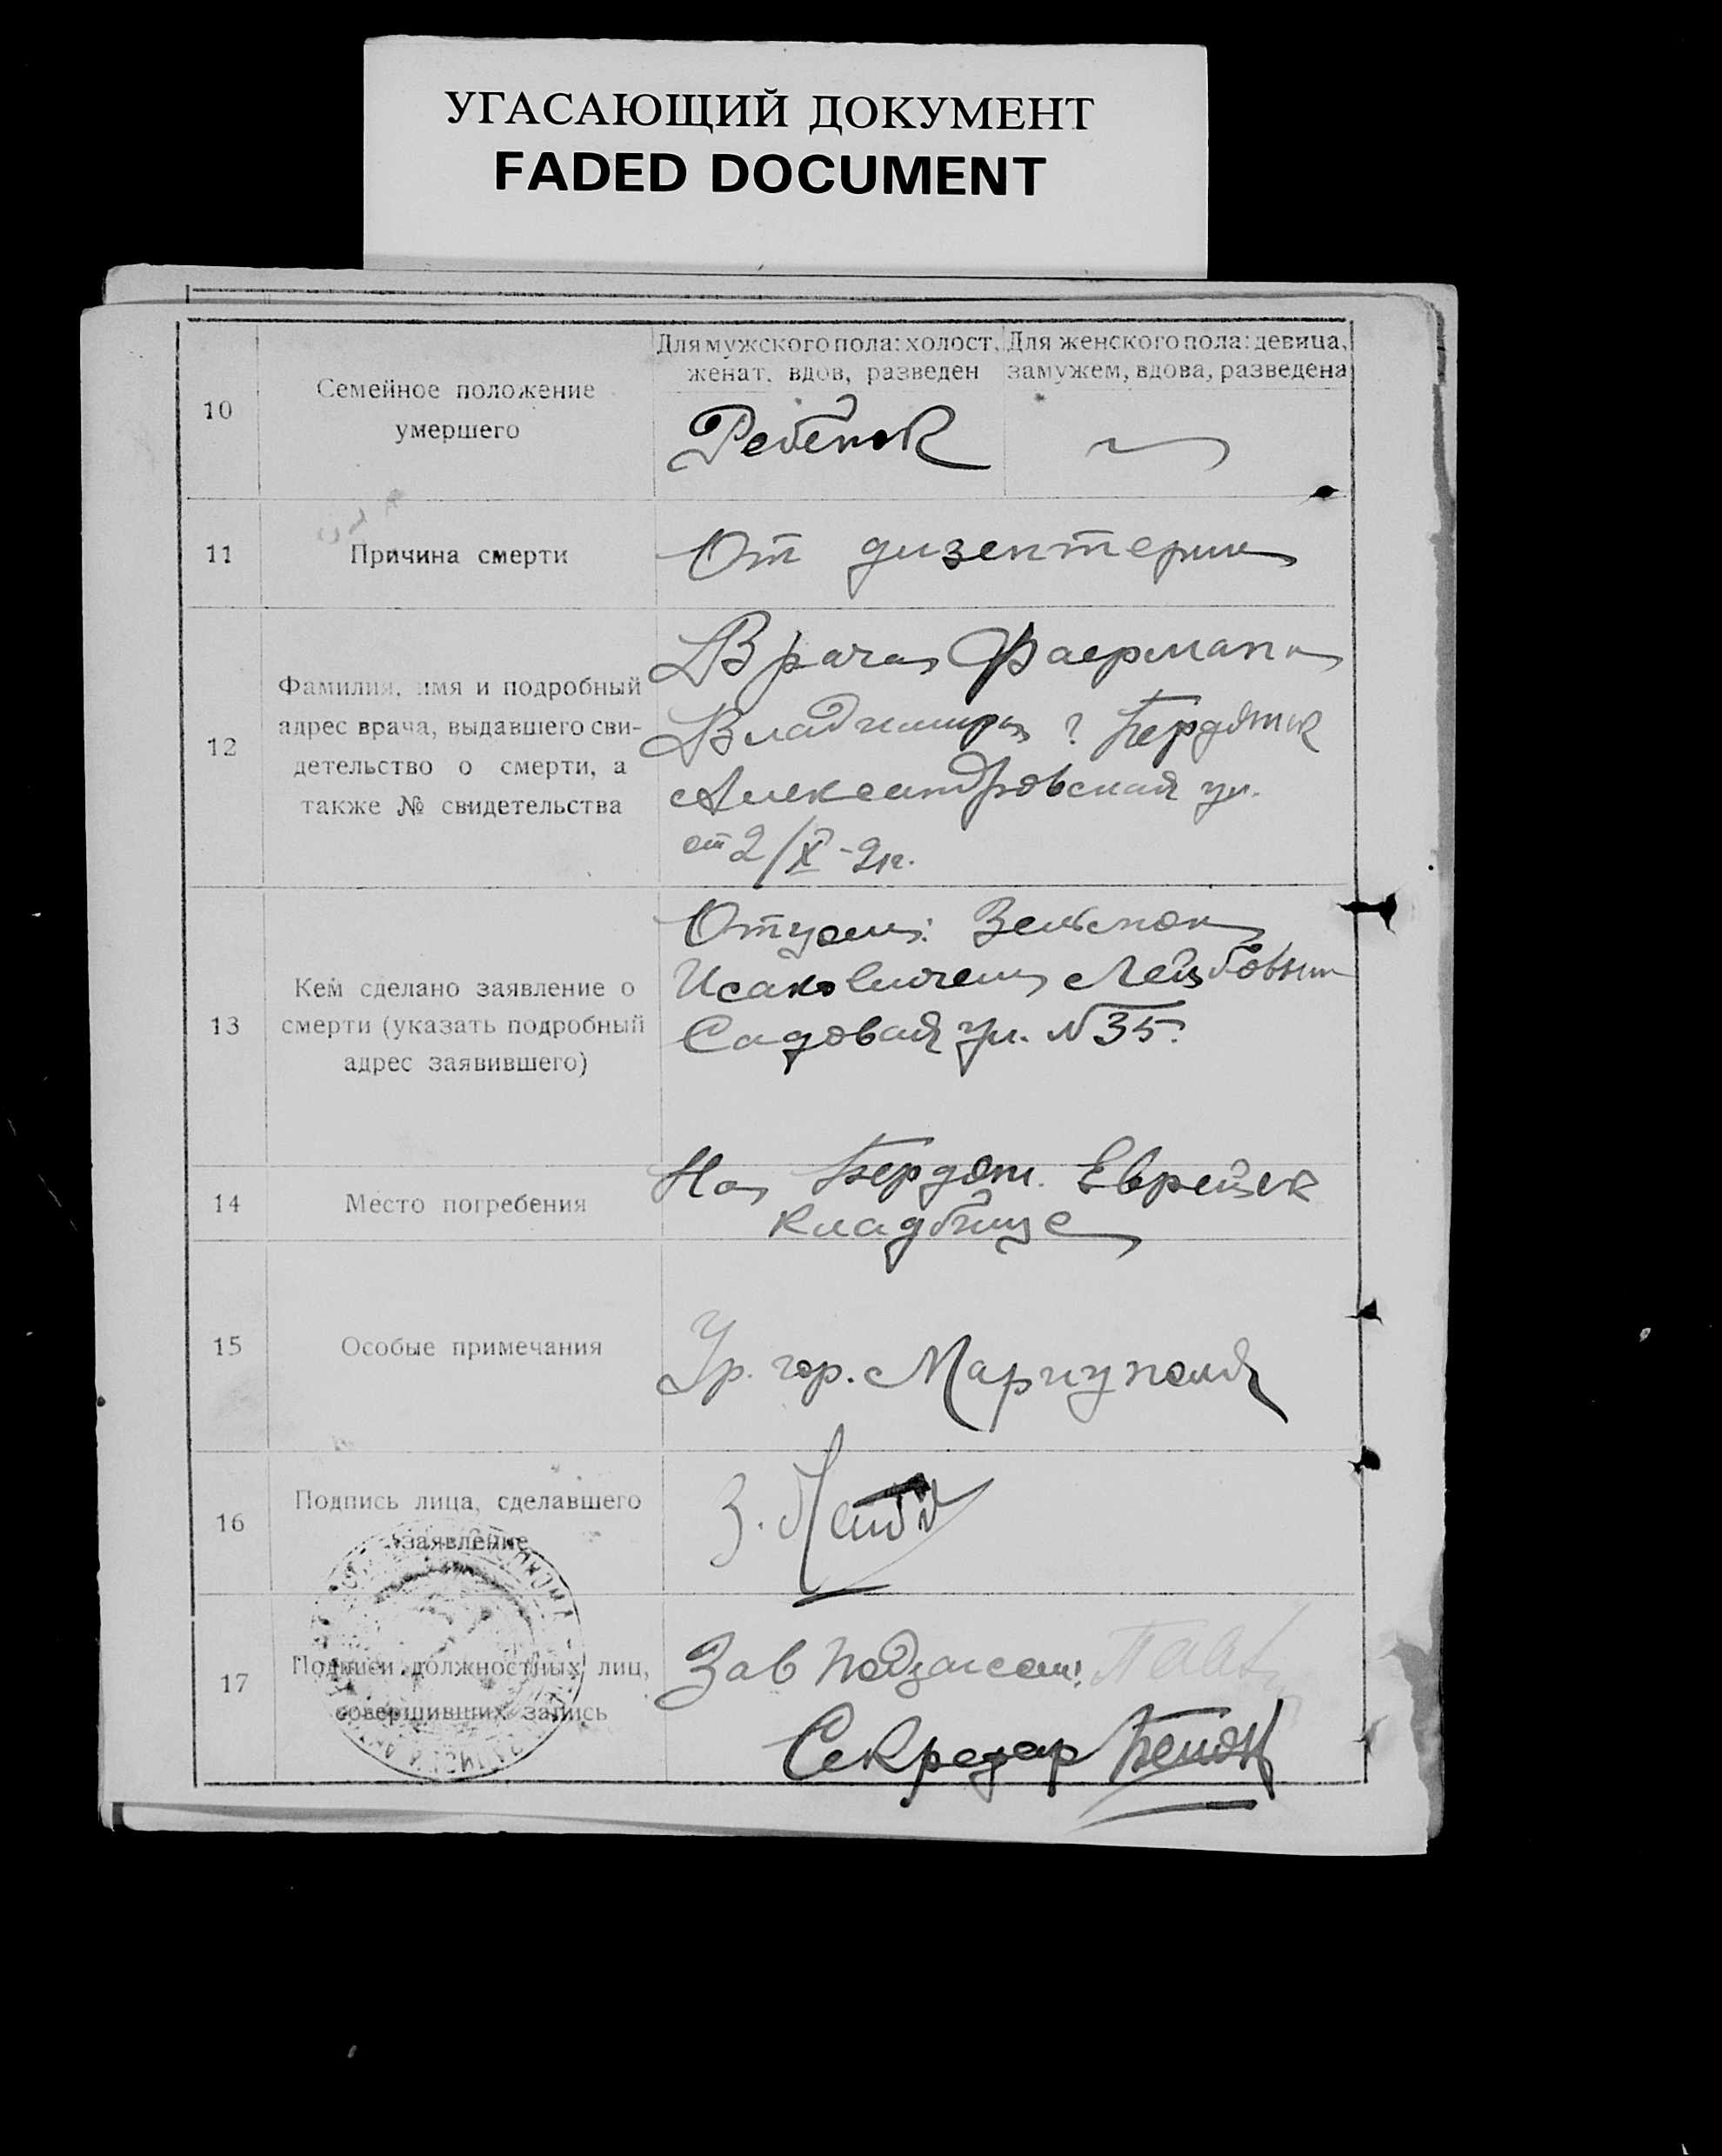 УГАСАЮЩИЙ ДОКУМЕНТ
FADED DOCUMENT
10
Семейное положение
умершего
Для мужского пола: холост,
женат, вдов, разведен
Для женского пола: девица,
замужем, вдова, разведена
Ребенок
11
Причина смерти
От дизентерии
12
Фамилия, имя и подробный
адрес врача, выдавшего сви-
детельство о смерти, а
также № свидетельства
Врача Фаермана
Владимира г. Бердянск
Александровская ул.
от 2/X-21г.
13
Кем сделано заявление о
смерти (указать подробный
адрес заявившего)
Отцом:
Исаковичем
Садовая ул. N 35.
14
Место погребения
На Бердян. Еврейск
кладбище
15
Особые примечания
Ур. гор. Мариуполя
16
Подпись лица, сделавшего
заявление
З.
17
Подписи должностных лиц,
совершивших запись
Зав Подзагсом:
Секретар